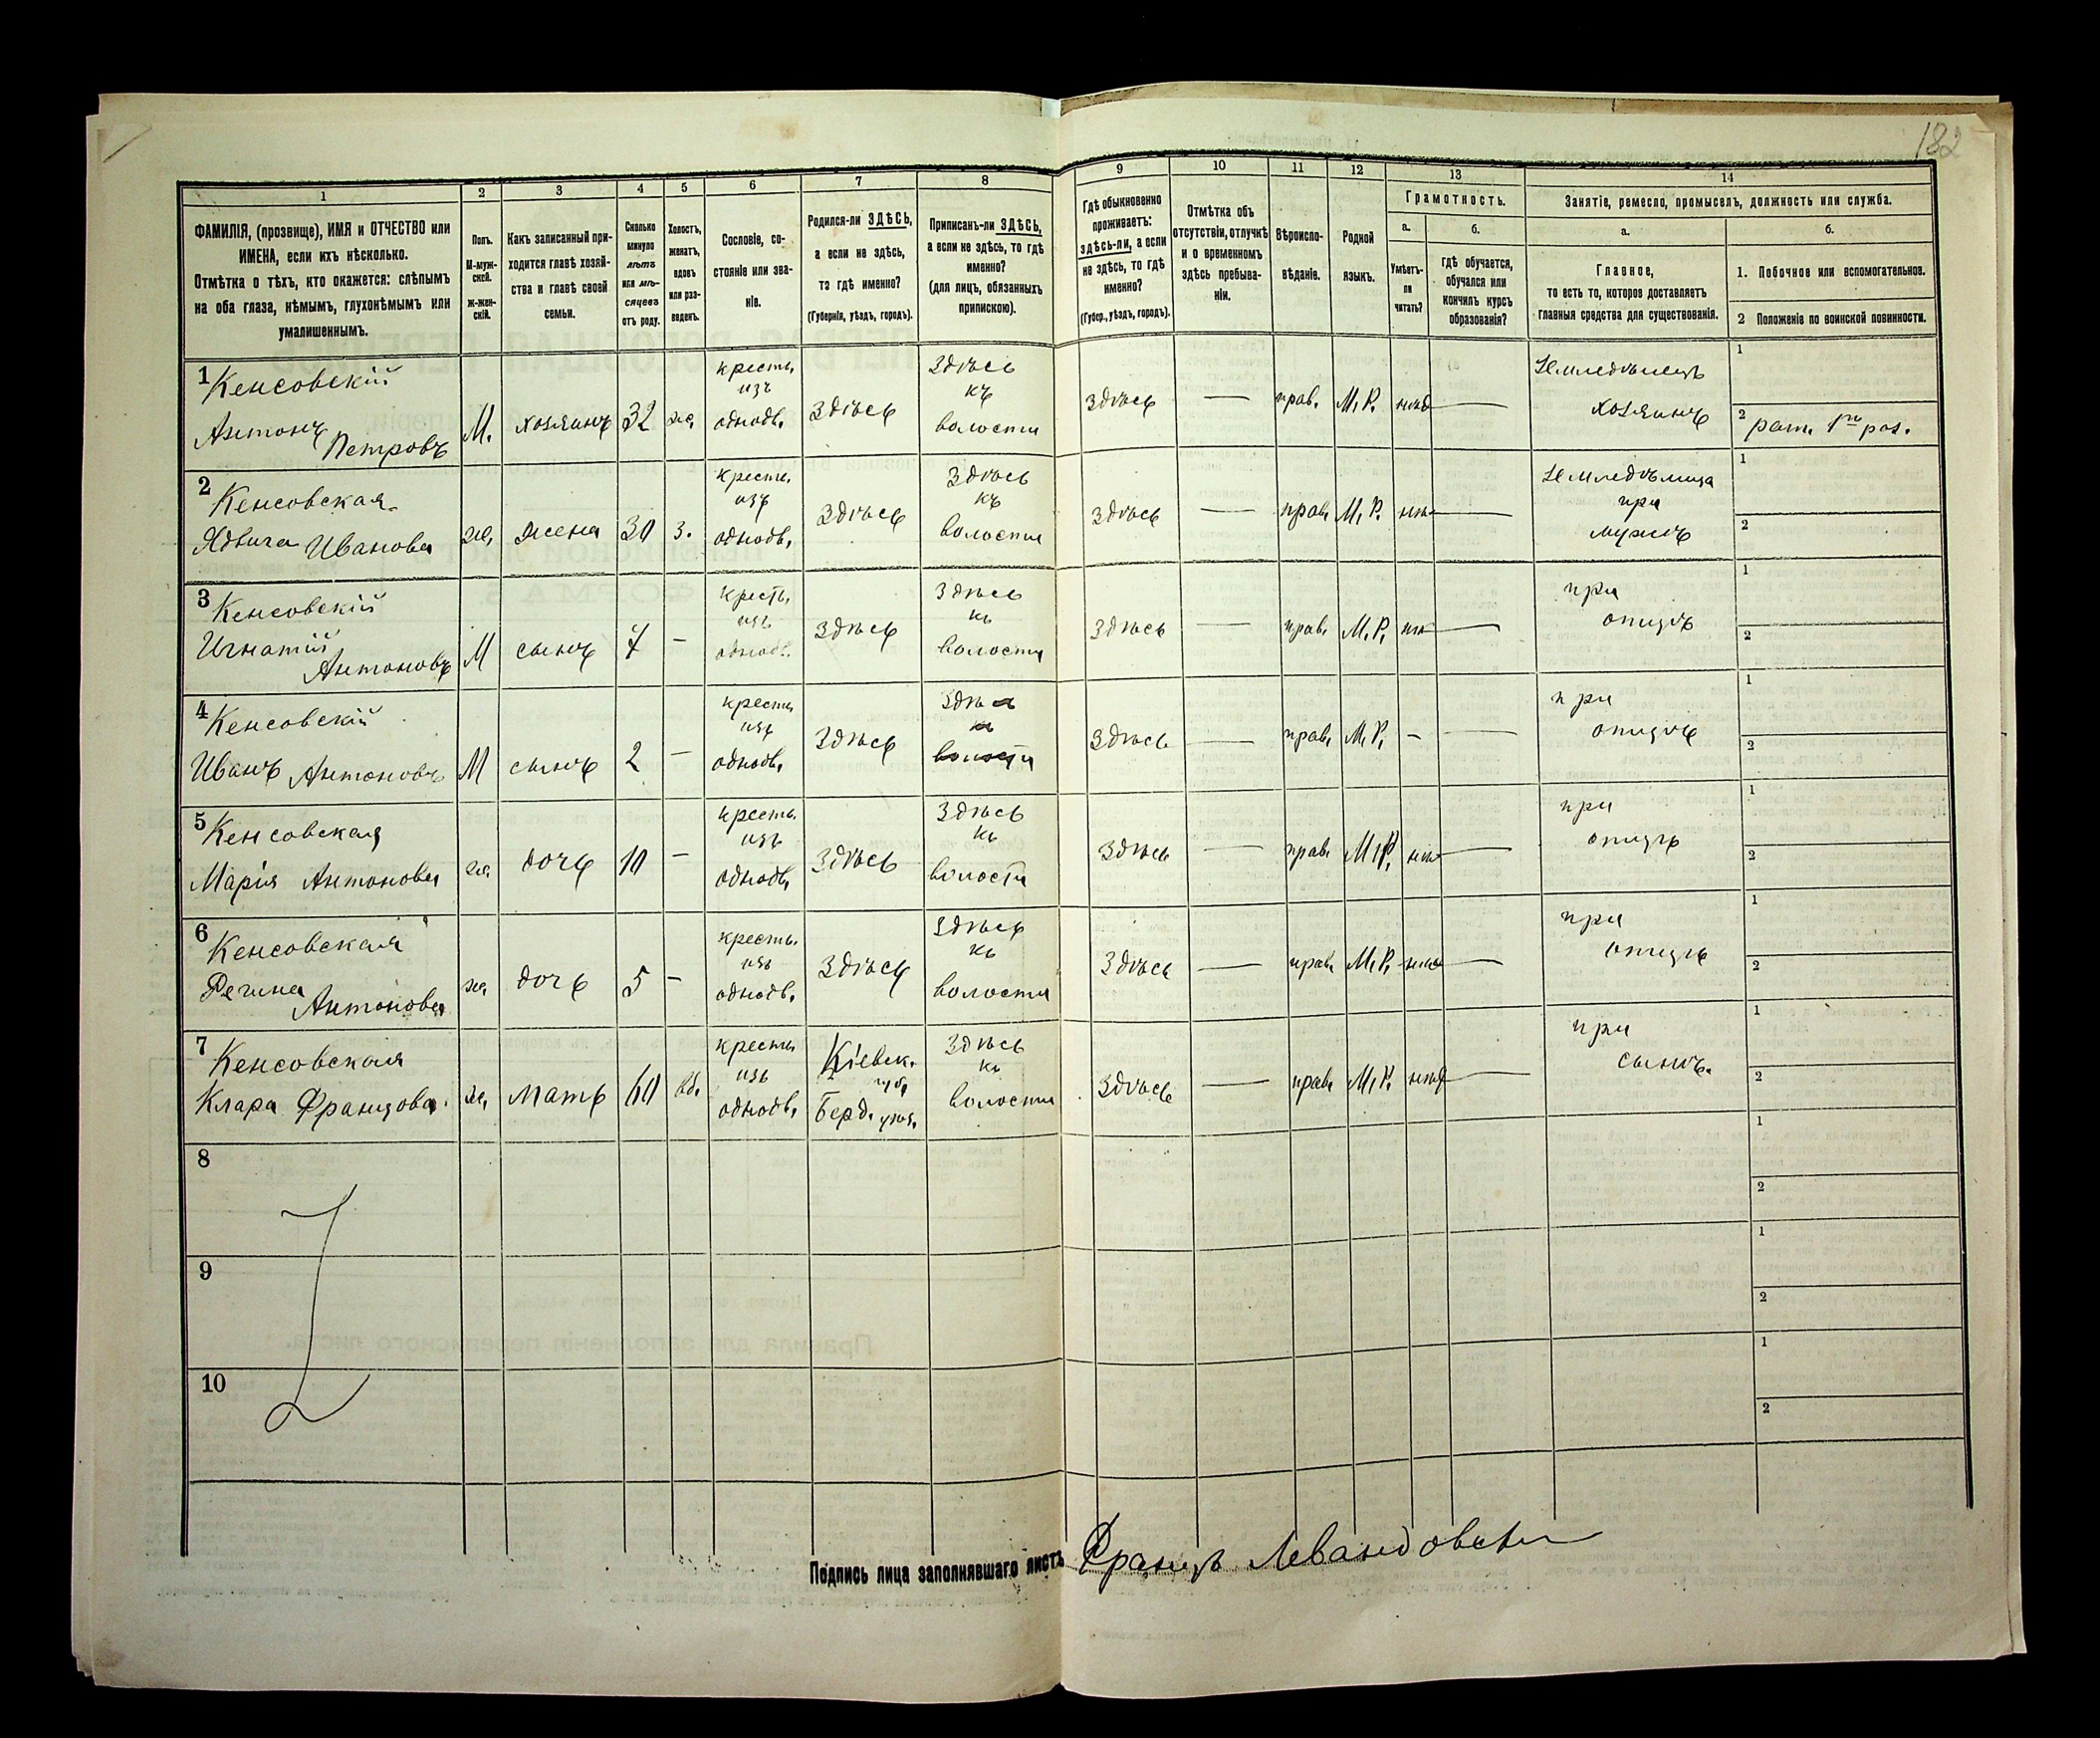 182
1 2 3 4 5 6 7 8 9 10 11 12 13 14
ФАМИЛІЯ, (прозвище), ИМЯ и ОТЧЕСТВО или
ИМЕНА, если ихъ нѣсколько.
Отмѣтка о тѣхъ, кто окажется: слѣпымъ
на оба глаза, нѣмымъ, глухонѣмымъ или
умалишеннымъ.
Полъ.
М-муж-
ской.
ж-жен-
скій.
Какъ записанный при-
ходится главѣ хозяй-
ства и главѣ своей
семьи.
Сколько
минуло
лѣтъ
или мѣ-
сяцевъ
отъ роду.
Холостъ,
женатъ,
вдовъ
или раз-
веденъ.
Сословіе, со-
стояніе или зва-
ніе.
Родился-ли ЗДѢСЬ,
а если не здѣсь,
то гдѣ именно?
(Губернія, уѣздъ, городъ).
Приписанъ-ли ЗДѢСЬ,
а если не здѣсь, то гдѣ
именно?
(для лицъ, обязанныхъ
припискою).
Гдѣ обыкновенно
проживаетъ:
здѣсь-ли, а если
не здѣсь, то гдѣ
именно?
(Губер., уѣздъ, городъ).
Отмѣтка объ
отсутствіи, отлучкѣ
и о временномъ
здѣсь пребыва-
ніи.
Вѣроиспо-
вѣданіе.
Родной
языкъ.
Грамотность.
а.
Умѣетъ-
ли
читать?
б.
гдѣ обучается,
обучался или
кончилъ курсъ
образованія?
Занятіе, ремесло, промыселъ, должность или служба.
а.
Главное,
то есть то, которое доставляетъ
главныя средства для существованія.
б.
1. Побочное или вспомогательное.
2 Положеніе по воинской повинности.
1 Кенсовскій
Антонъ Петровъ
М. хозяинъ 32 же.
крестъ. изъ однодв.
Здѣсь
Здѣсь къ волости
Здѣсь — прав. М. Р. нѣтъ —
Земледѣлецъ хозяинъ
1
2 рат. 1го раз.
2 Кенсовская
Ядвига Иванова
же. жена 30 з.
кресть. изъ однодв.
Здѣсь
Здѣсь къ волости
Здѣсь — прав. М. Р. нѣт —
Земледѣлица при мужѣ
1
2
3 Кенсовскій
Игнатій Антоновъ
М сынъ 7 —
кресть. изъ однодв.
Здѣсь
Здѣсь къ волости
Здѣсь — прав. М. Р. нѣт —
при отцѣ
1
2
4 Кенсовскій
Иванъ Антоновъ
М сынъ 2 —
кресть. изъ однодв.
Здѣсь
Здѣсь къ волости
Здѣсь — прав. М. Р. — —
при отцѣ
1
2
5 Кенсовская
Марія Антонова
же. дочь 10 —
кресть. изъ однодв.
Здѣсь
Здѣсь къ волости
Здѣсь — прав. М. Р. нѣт —
при отцѣ
1
2
6 Кенсовская
Регина Антонова
же. дочь 5 —
кресть. изъ однодв.
Здѣсь
Здѣсь къ волости
Здѣсь — прав. М. Р. нѣт —
при отцѣ
1
2
7 Кенсовская
Клара Францова
же. мать 60 вд.
кресть. изъ однодв.
Кіевск. губ. Берд. уѣз.
Здѣсь къ волости
Здѣсь — прав. М. Р. нѣт —
при сынѣ.
1
2
8
1
2
9
1
2
10
1
2
Подпись лица заполнявшаго листъ Францъ Левандовски